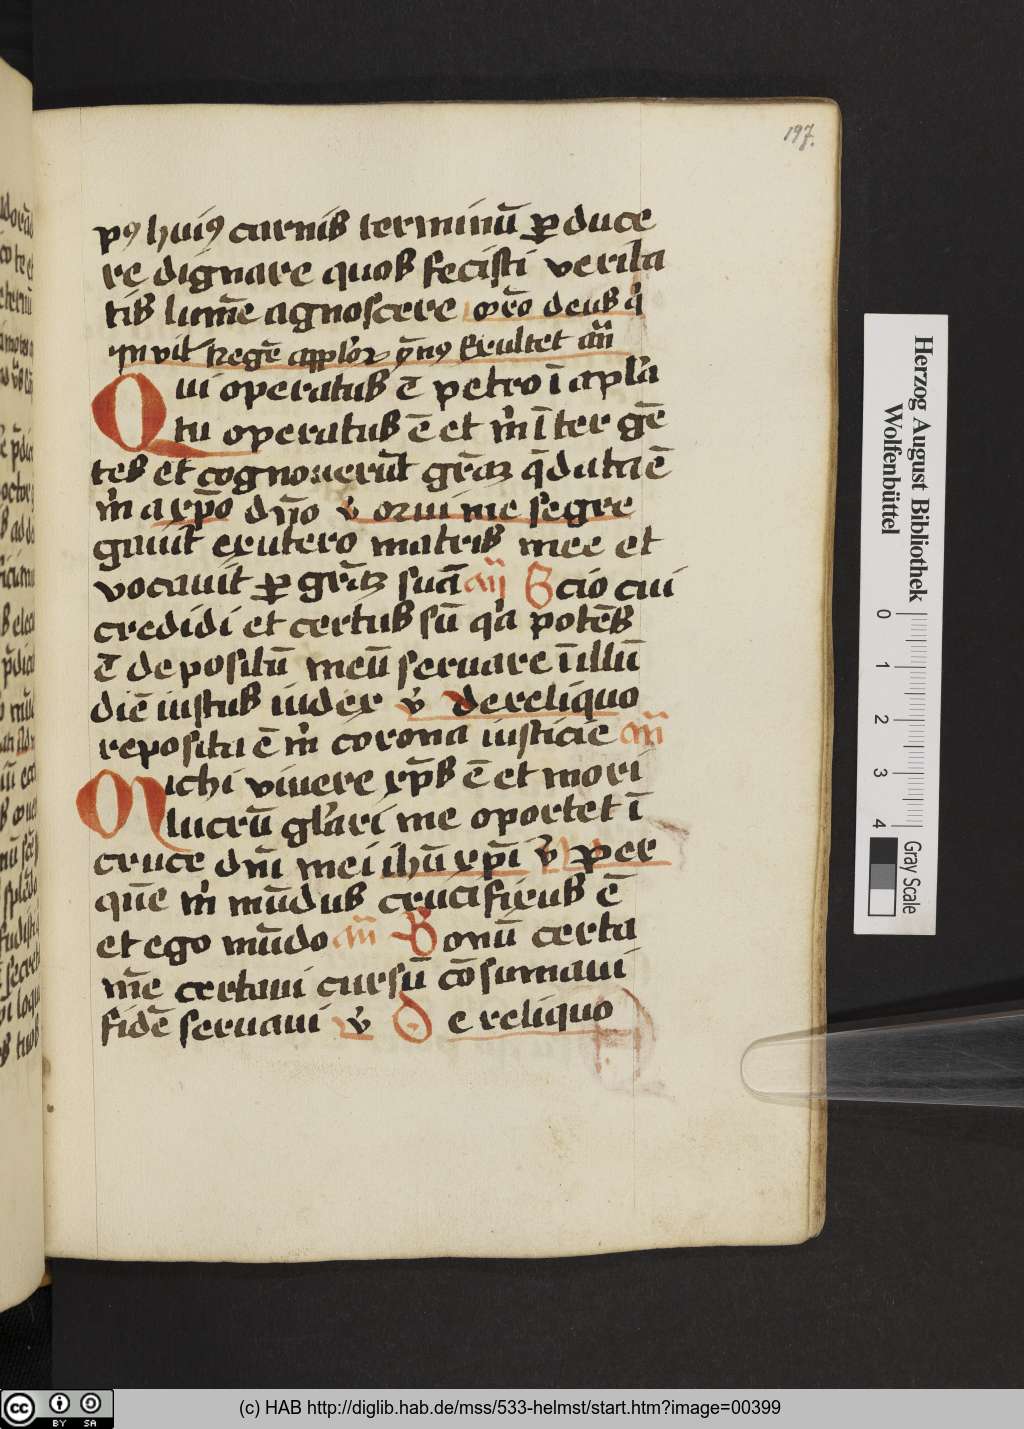 197.
pꝰ huiꝰ carnis terminū ꝑduce
re dignare quos fecisti verita
tis lumīe agnoscere orō deus qͥ
In vit Regē apploꝝ ẏmnꝰ Exultet añ
Qui operatus ē petro ī aplā
tu operatus ē et mͥ īter gē
tes et cognouerūt grāꝫ q̄ data ē
mͥ a xp̄o dño ℣ Qui me segre
gauit ex utero matris mee et
vocauit ꝑ grāꝫ suā añ Scio cui
credidi et certus sū qͥa potēs
ē depositū meū seruare ī illū
diē iustus iudex ℣ de reliquo
reposita ē mͥ corona iusticie añ
Michi viuere xp̄s ē et mori
lucrū glͥari me oportet ī
cruce dñi mei ihū xp̄i ℣ Per
quē mͥ mūdus crucifixus ē
et ego mūdo añ Bonū certa
mē certaui cursū cōsumaui
fidē seruaui ℣ De reliquo
Herzog August Bibliothek
Wolfenbüttel
0 1 2 3 4
Gray Scale
cc BY SA
(c) HAB http://diglib.hab.de/mss/533-helmst/start.htm?image=00399